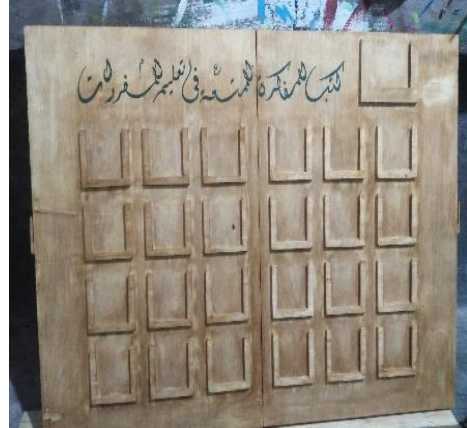 كتب المفكرة الممتعة في تعليم المفردات